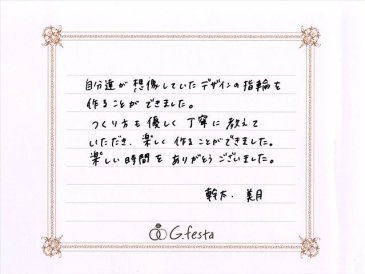 自分達が想像していたデザインの指輪を
作ることができました。
つくり方も優しく丁寧に教えて
いただき、楽しく作ることができました。
楽しい時間をありがとうございました。
幹太・美月
G.festa